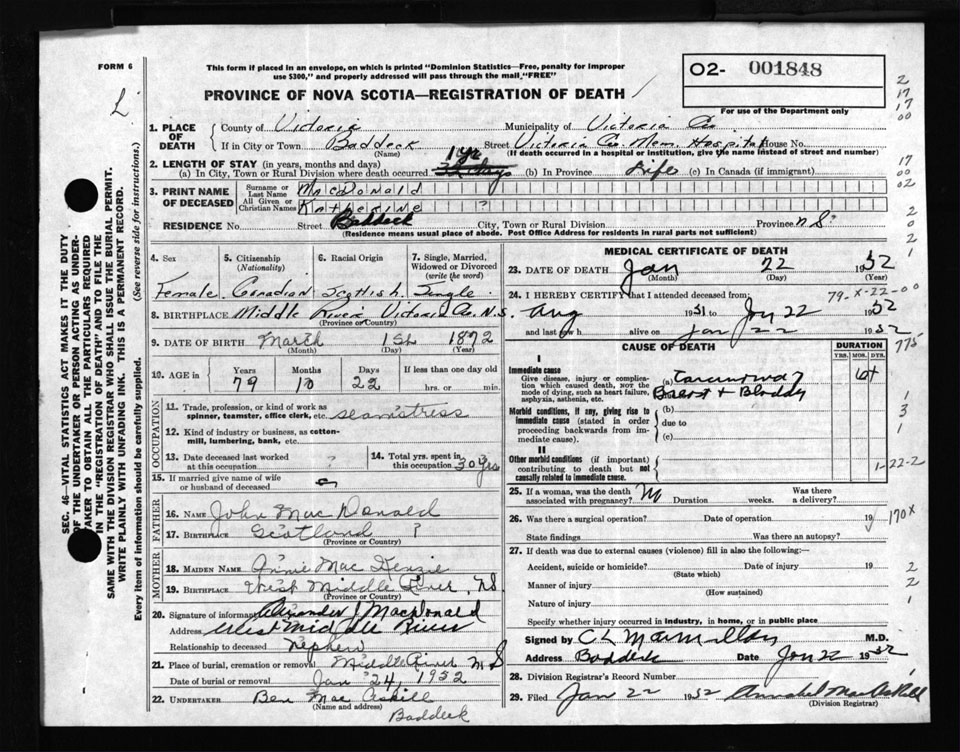 FORM 6
This form if placed in an envelope, on which is printed "Dominion Statistics—Free, penalty for improper
use $300," and properly addressed will pass through the mail, "FREE"
O2- 001848
L
PROVINCE OF NOVA SCOTIA—REGISTRATION OF DEATH
For use of the Department only
2
17
17
00
1. PLACE OF DEATH
County of Victoria Municipality of Victoria Co.
If in City or Town Baddeck Street Victoria Co. Mem. Hospital House No.
(Name) (If death occurred in a hospital or institution, give the name instead of street and number)
2. LENGTH OF STAY (in years, months and days)
(a) In City, Town or Rural Division where death occurred 1 yr (b) In Province Life (c) In Canada (if immigrant)
17
00
02
3. PRINT NAME OF DECEASED
Surname or Last Name MacDonald
All Given or Christian Names Katherine ?
RESIDENCE No. Street Baddeck City, Town or Rural Division Province N.S.
(Residence means usual place of abode. Post Office Address for residents in rural parts not sufficient)
2
0
2
1
4. Sex 5. Citizenship (Nationality) 6. Racial Origin 7. Single, Married, Widowed or Divorced (write the word)
Female Canadian Scottish Single
8. BIRTHPLACE Middle River Victoria Co. N.S.
(Province or Country)
9. DATE OF BIRTH March 1st 1872
(Month) (Day) (Year)
10. AGE in Years Months Days If less than one day old
79 10 22 hrs. or min.
OCCUPATION
11. Trade, profession, or kind of work as spinner, teamster, office clerk, etc. seamstress
12. Kind of industry or business, as cotton-mill, lumbering, bank, etc.
13. Date deceased last worked at this occupation ?
14. Total yrs. spent in this occupation 30 yrs
15. If married give name of wife or husband of deceased
FATHER
16. NAME John MacDonald
17. BIRTHPLACE Scotland ?
(Province or Country)
MOTHER
18. MAIDEN NAME Annie MacKenzie
19. BIRTHPLACE West Middle River, N.S.
(Province or Country)
20. Signature of informant Alexander J MacDonald
Address West Middle River
Relationship to deceased Nephew
21. Place of burial, cremation or removal Middle River N S
Date of burial or removal Jan 24, 1952
22. UNDERTAKER Ben MacAskill
(Name and address)
Baddeck
MEDICAL CERTIFICATE OF DEATH
23. DATE OF DEATH Jan 22 1952
(Month) (Day)
24. I HEREBY CERTIFY that I attended deceased from: 79-X-22-00
Aug 1951 to Jan 22 1952
and last saw h alive on Jan 22 1952
775
CAUSE OF DEATH
DURATION
YRS. MOS. DYS.
I
Immediate cause
Give disease, injury or complication which caused death, NOT the mode of dying, such as heart failure, asphyxia, asthenia, etc.
(a) Carcinoma of
Breast + Bladder
6+
Morbid conditions, if any, giving rise to immediate cause (stated in order proceeding backwards from immediate cause).
(b)
due to
(c)
1
3
1
II
Other morbid conditions (if important) contributing to death but not causally related to immediate cause.
1-22-2
25. If a woman, was the death associated with pregnancy? No Duration weeks. Was there a delivery?
26. Was there a surgical operation? Date of operation 19
170X
State findings Was there an autopsy?
27. If death was due to external causes (violence) fill in also the following:—
Accident, suicide or homicide? Date of injury 19
(State which)
2
Manner of injury
2
(How sustained)
Nature of injury
1
Specify whether injury occurred in industry, in home, or in public place
Signed by C L MacMillan M.D.
Address Baddeck Date Jan 22 1952
28. Division Registrar's Record Number
29. Filed Jan 22 1952 Annabel MacAskill
(Division Registrar)
SEC. 46—VITAL STATISTICS ACT MAKES IT THE DUTY
OF THE UNDERTAKER OR PERSON ACTING AS UNDER-
TAKER TO OBTAIN ALL THE PARTICULARS REQUIRED
IN THE "REGISTRATION OF DEATH" AND TO FILE THE
SAME WITH THE DIVISION REGISTRAR WHO SHALL ISSUE THE BURIAL PERMIT.
WRITE PLAINLY WITH UNFADING INK. THIS IS A PERMANENT RECORD.
Every item of information should be carefully supplied. (See reverse side for instructions.)